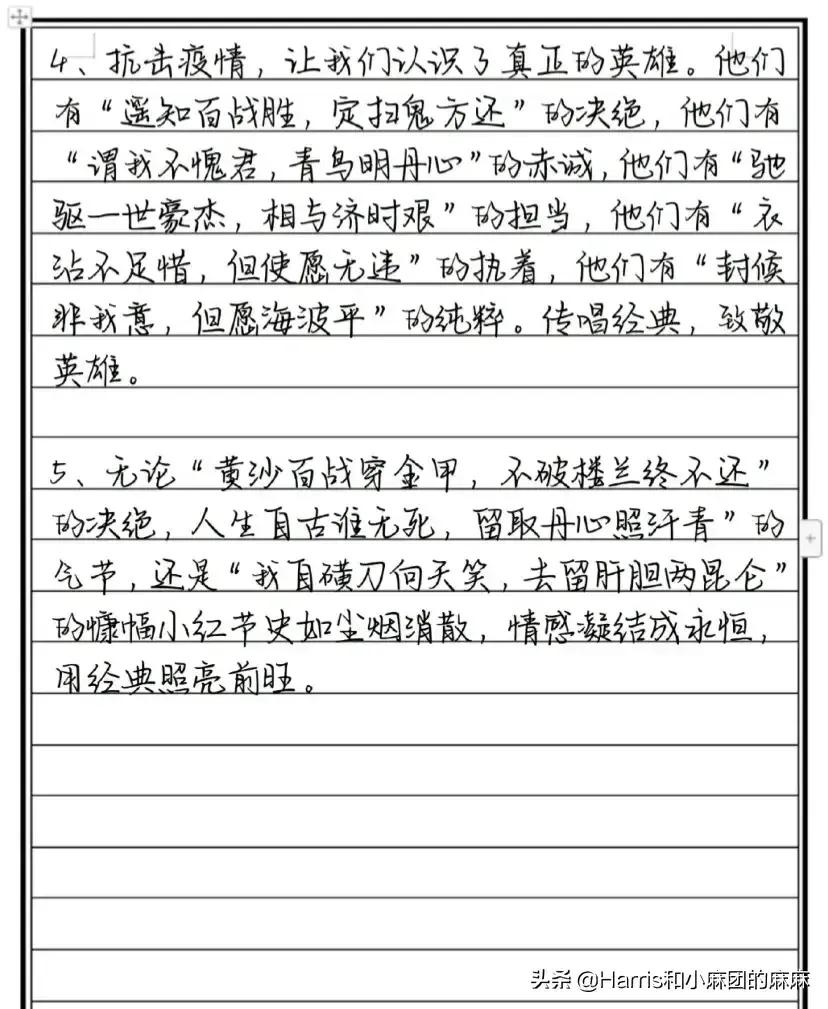 4、抗击疫情，让我们认识了真正的英雄。他们
有“遥知百战胜，定扫鬼方还”的决绝，他们有
“谓我不愧君，青鸟明丹心”的赤诚，他们有“驰
驱一世豪杰，相与济时艰”的担当，他们有“衣
沾不足惜，但使愿无违”的执着，他们有“封候
非我意，但愿海波平”的纯粹。传唱经典，致敬
英雄。
5、无论“黄沙百战穿金甲，不破楼兰终不还”
的决绝，人生自古谁无死，留取丹心照汗青”的
气节，还是“我自横刀向天笑，去留肝胆两昆仑”
的慷幅小红节史如尘烟消散，情感凝结成永恒，
用经典照亮前旺。
头条 @Harris和小麻团的麻麻